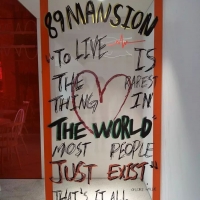 89MANSION
"TO LIVE IS
THE RAREST
THING IN
THE WORLD"
MOST PEOPLE
JUST EXIST"
THAT'S IT ALL